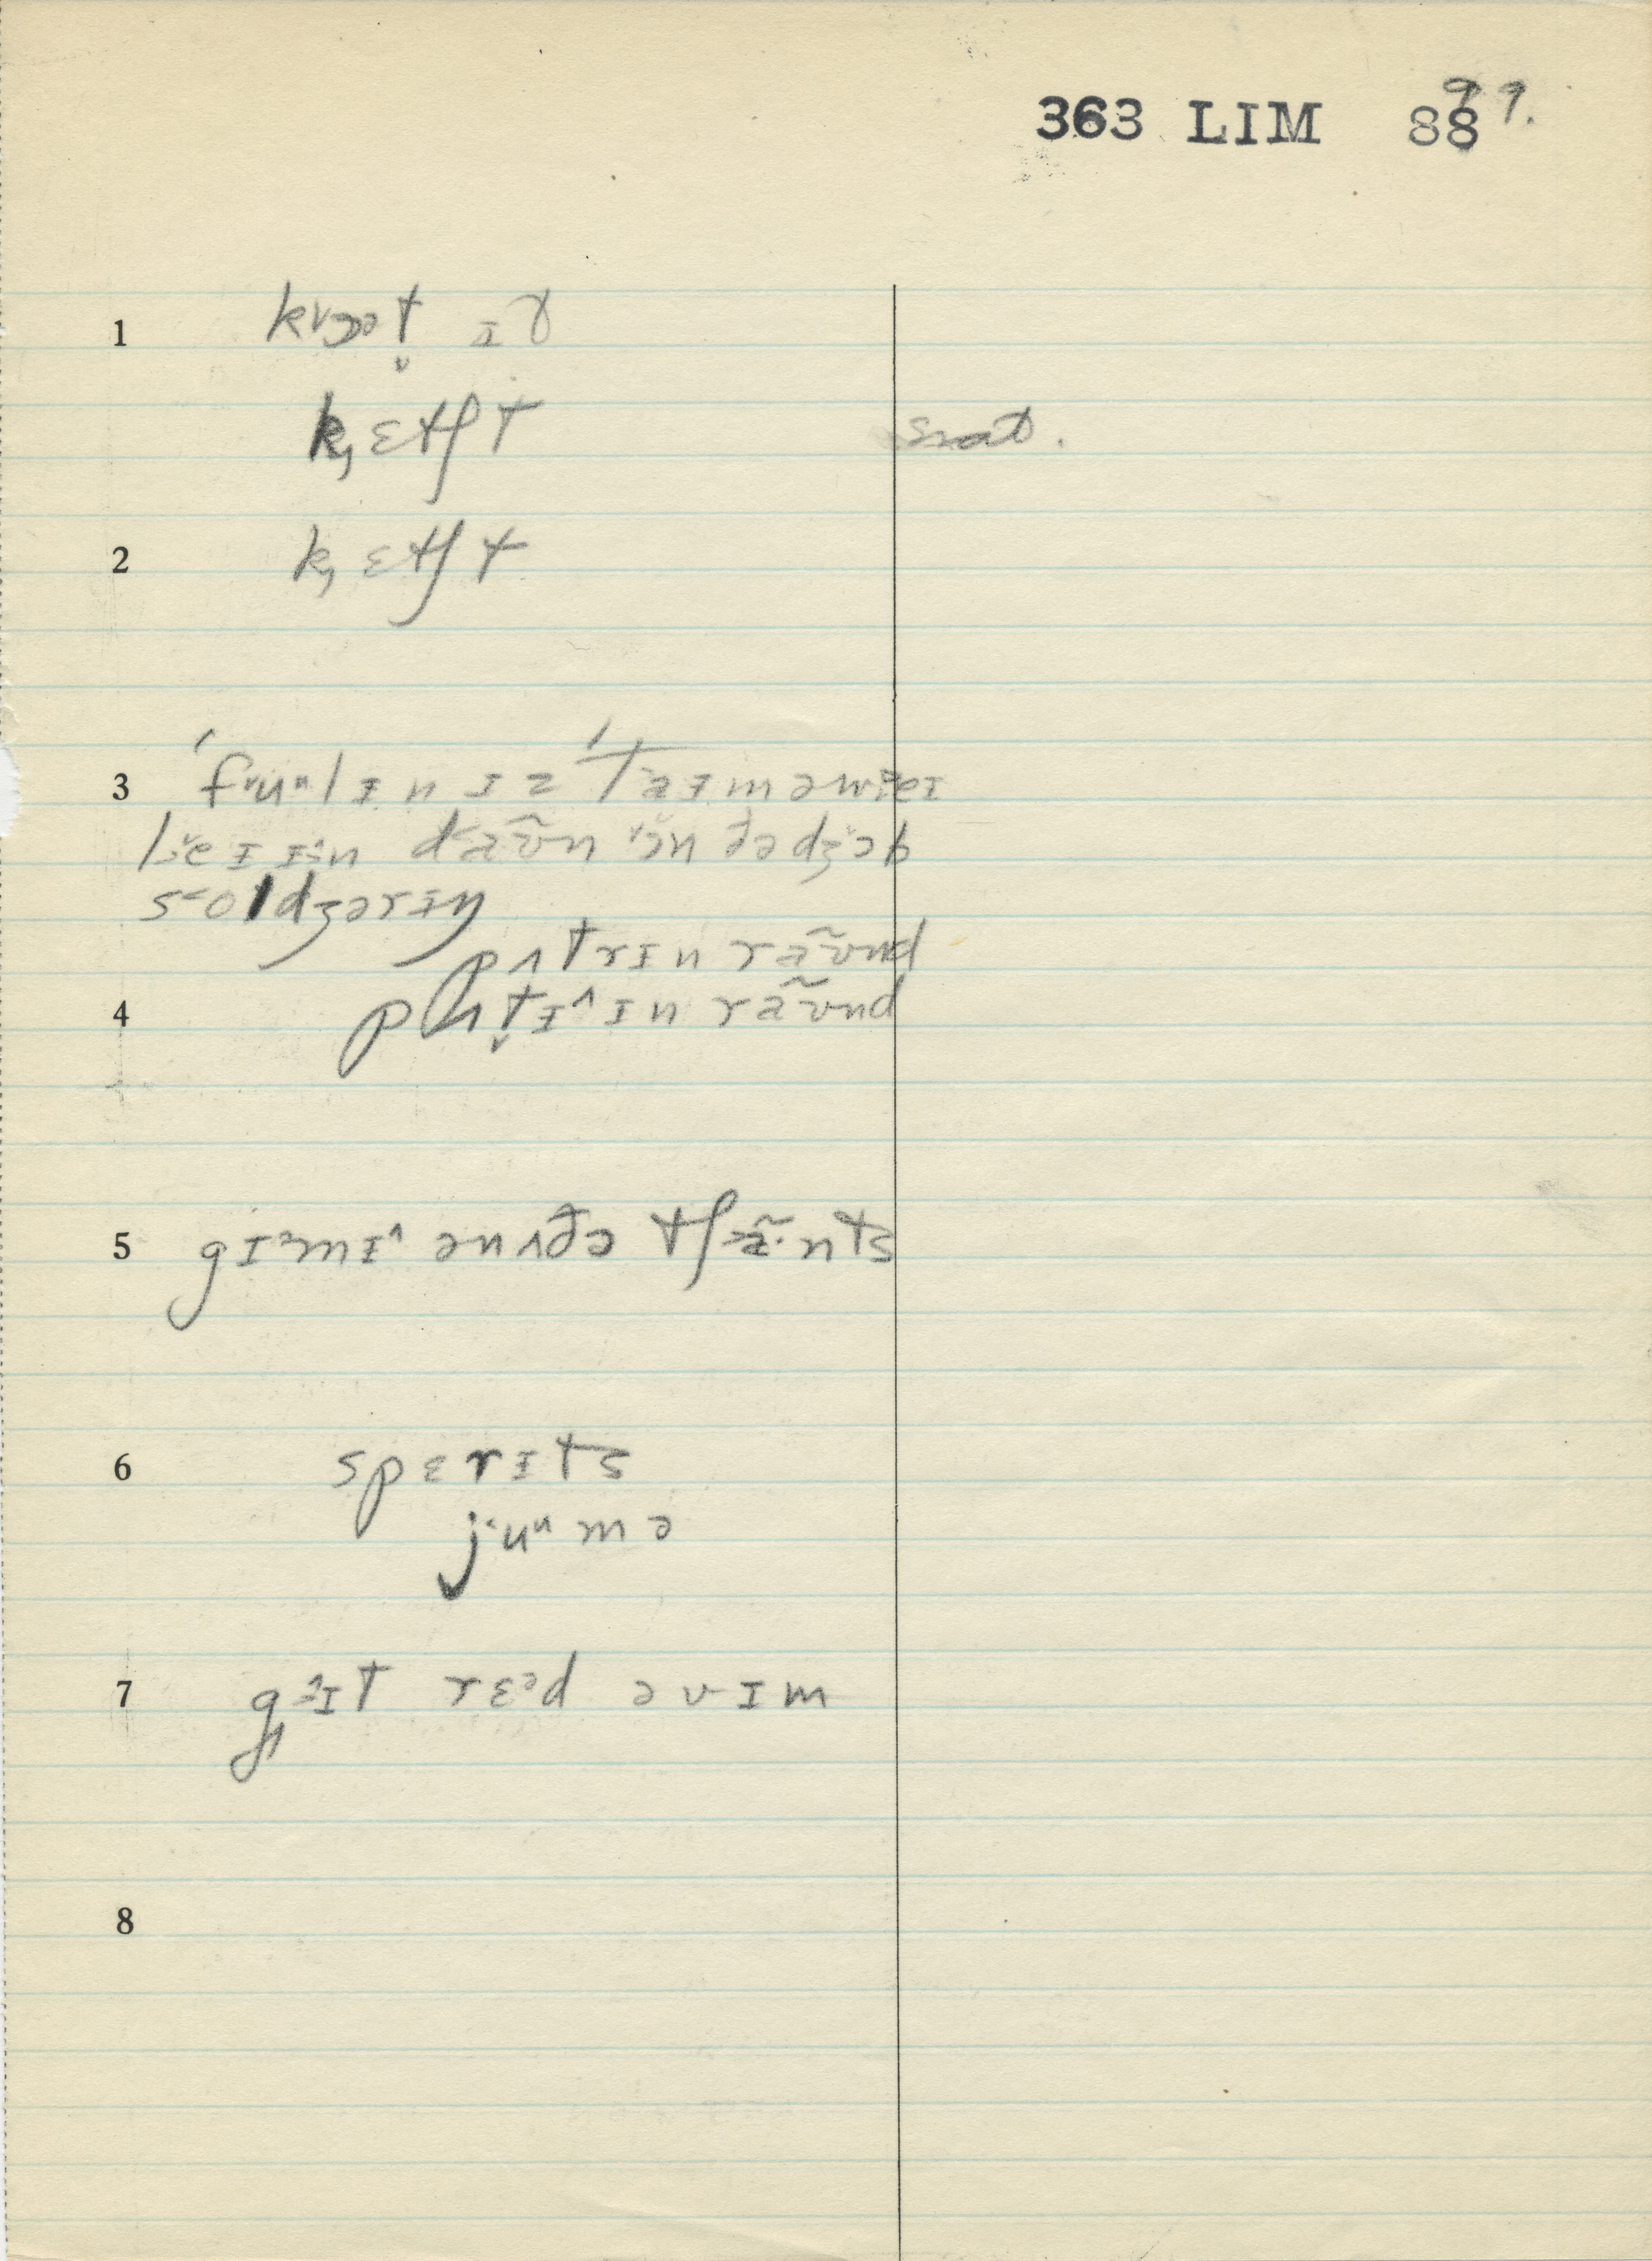 363 LIM 88 99.
1 kᵛɔət̬ ɪɤ
k̡ɛtʃt
snat.
2 k̡ɛtʃt
3 ˈfᵘuᵘlɪnɪz ˈtaɪməweɪ
leɪɪn daʊ̃n ɔn ðədʒɔb
s˂oldʒərɪŋ
pʌtrɪn raʊ̃nd
4 pʌt̬ɪ^ɪn raʊ̃nd
5 gɪᵊmɪ^ ənʌðə tʃæ̃·nts
6 spɛrɪts
j˂uᵘmə
7 g̡ɪt rɛᵊd əvɪm
8